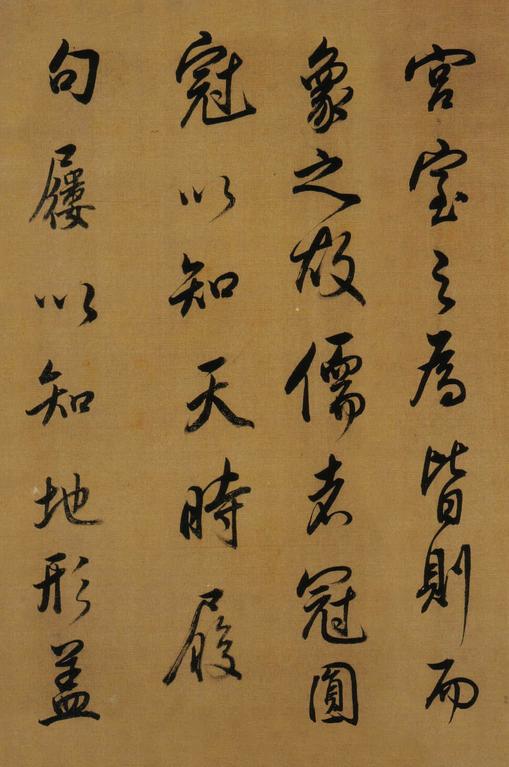 宮室之為皆則而
象之故儒者冠圓
冠以知天時履
句屨以知地形蓋